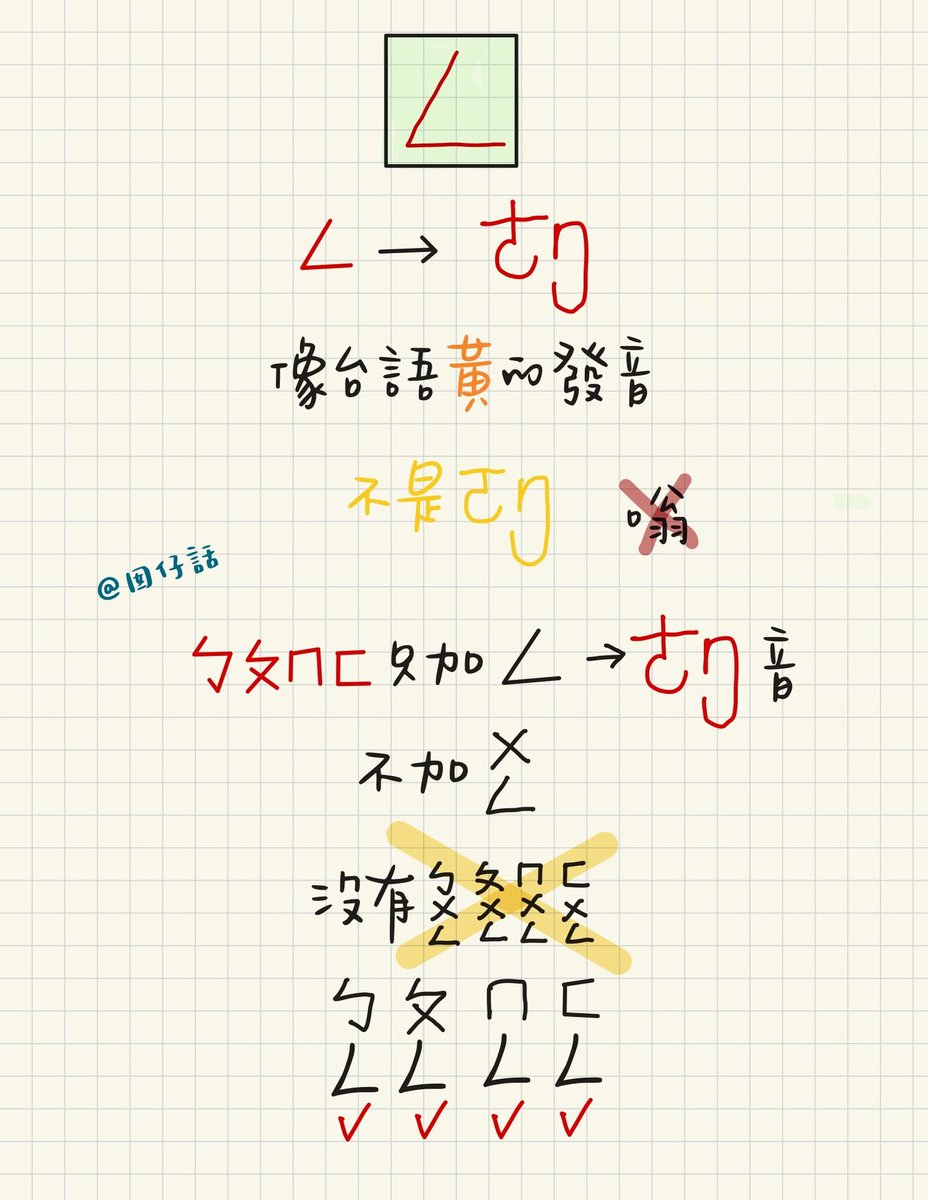 ㄥ
ㄥ → ㄜŋ
像台語黃的發音
不是ㄛŋ 嗡
@囡仔話
ㄅㄆㄇㄈ只加ㄥ→ㄜŋ音
不加ㄨㄥ
沒有ㄅㄨㄥ ㄆㄨㄥ ㄇㄨㄥ ㄈㄨㄥ
ㄅㄥ ㄆㄥ ㄇㄥ ㄈㄥ